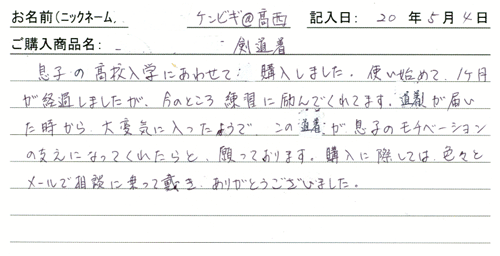 お名前(ニックネーム、 ケンビギ@高西 記入日： 20 年 5月 4日
ご購入商品名： 剣道着
息子の高校入学にあわせて、購入しました。使い始めて、1ヶ月
が経過しましたが、今のところ練習に励んでくれてます。道着が届い
た時から、大変気に入ったようで、この道着が息子のモチベーション
の支えになってくれたらと、願っております。購入に際しては、色々と
メールで相談に乗って戴き、ありがとうございました。